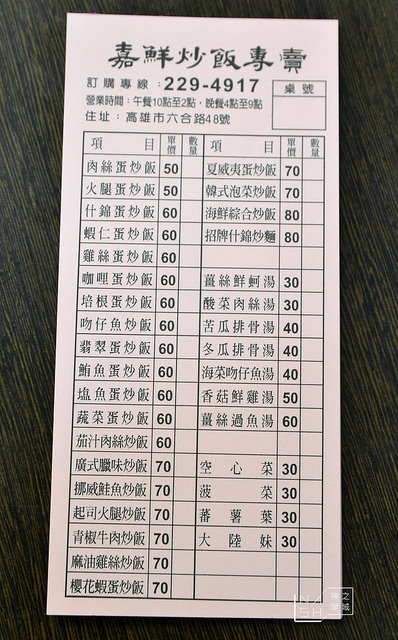 嘉鮮炒飯專賣
訂購專線：229-4917
營業時間：午餐10點至2點，晚餐4點至9點
住址：高雄市六合路48號
桌號
項目 單價 數量 項目 單價 數量
肉絲蛋炒飯 50 夏威夷蛋炒飯 70
火腿蛋炒飯 50 韓式泡菜炒飯 70
什錦蛋炒飯 60 海鮮綜合炒飯 80
蝦仁蛋炒飯 60 招牌什錦炒麵 80
雞絲蛋炒飯 60
咖哩蛋炒飯 60 薑絲鮮蚵湯 30
培根蛋炒飯 60 酸菜肉絲湯 30
吻仔魚炒飯 60 苦瓜排骨湯 40
翡翠蛋炒飯 60 冬瓜排骨湯 40
鮪魚蛋炒飯 60 海菜吻仔魚湯 40
塩魚蛋炒飯 60 香菇鮮雞湯 50
蔬菜蛋炒飯 60 薑絲過魚湯 60
茄汁肉絲炒飯 60
廣式臘味炒飯 70 空心菜 30
挪威鮭魚炒飯 70 菠菜 30
起司火腿炒飯 70 蕃薯葉 30
青椒牛肉炒飯 70 大陸妹 30
麻油雞絲炒飯 70
櫻花蝦蛋炒飯 70
IN
SH
神之
領域